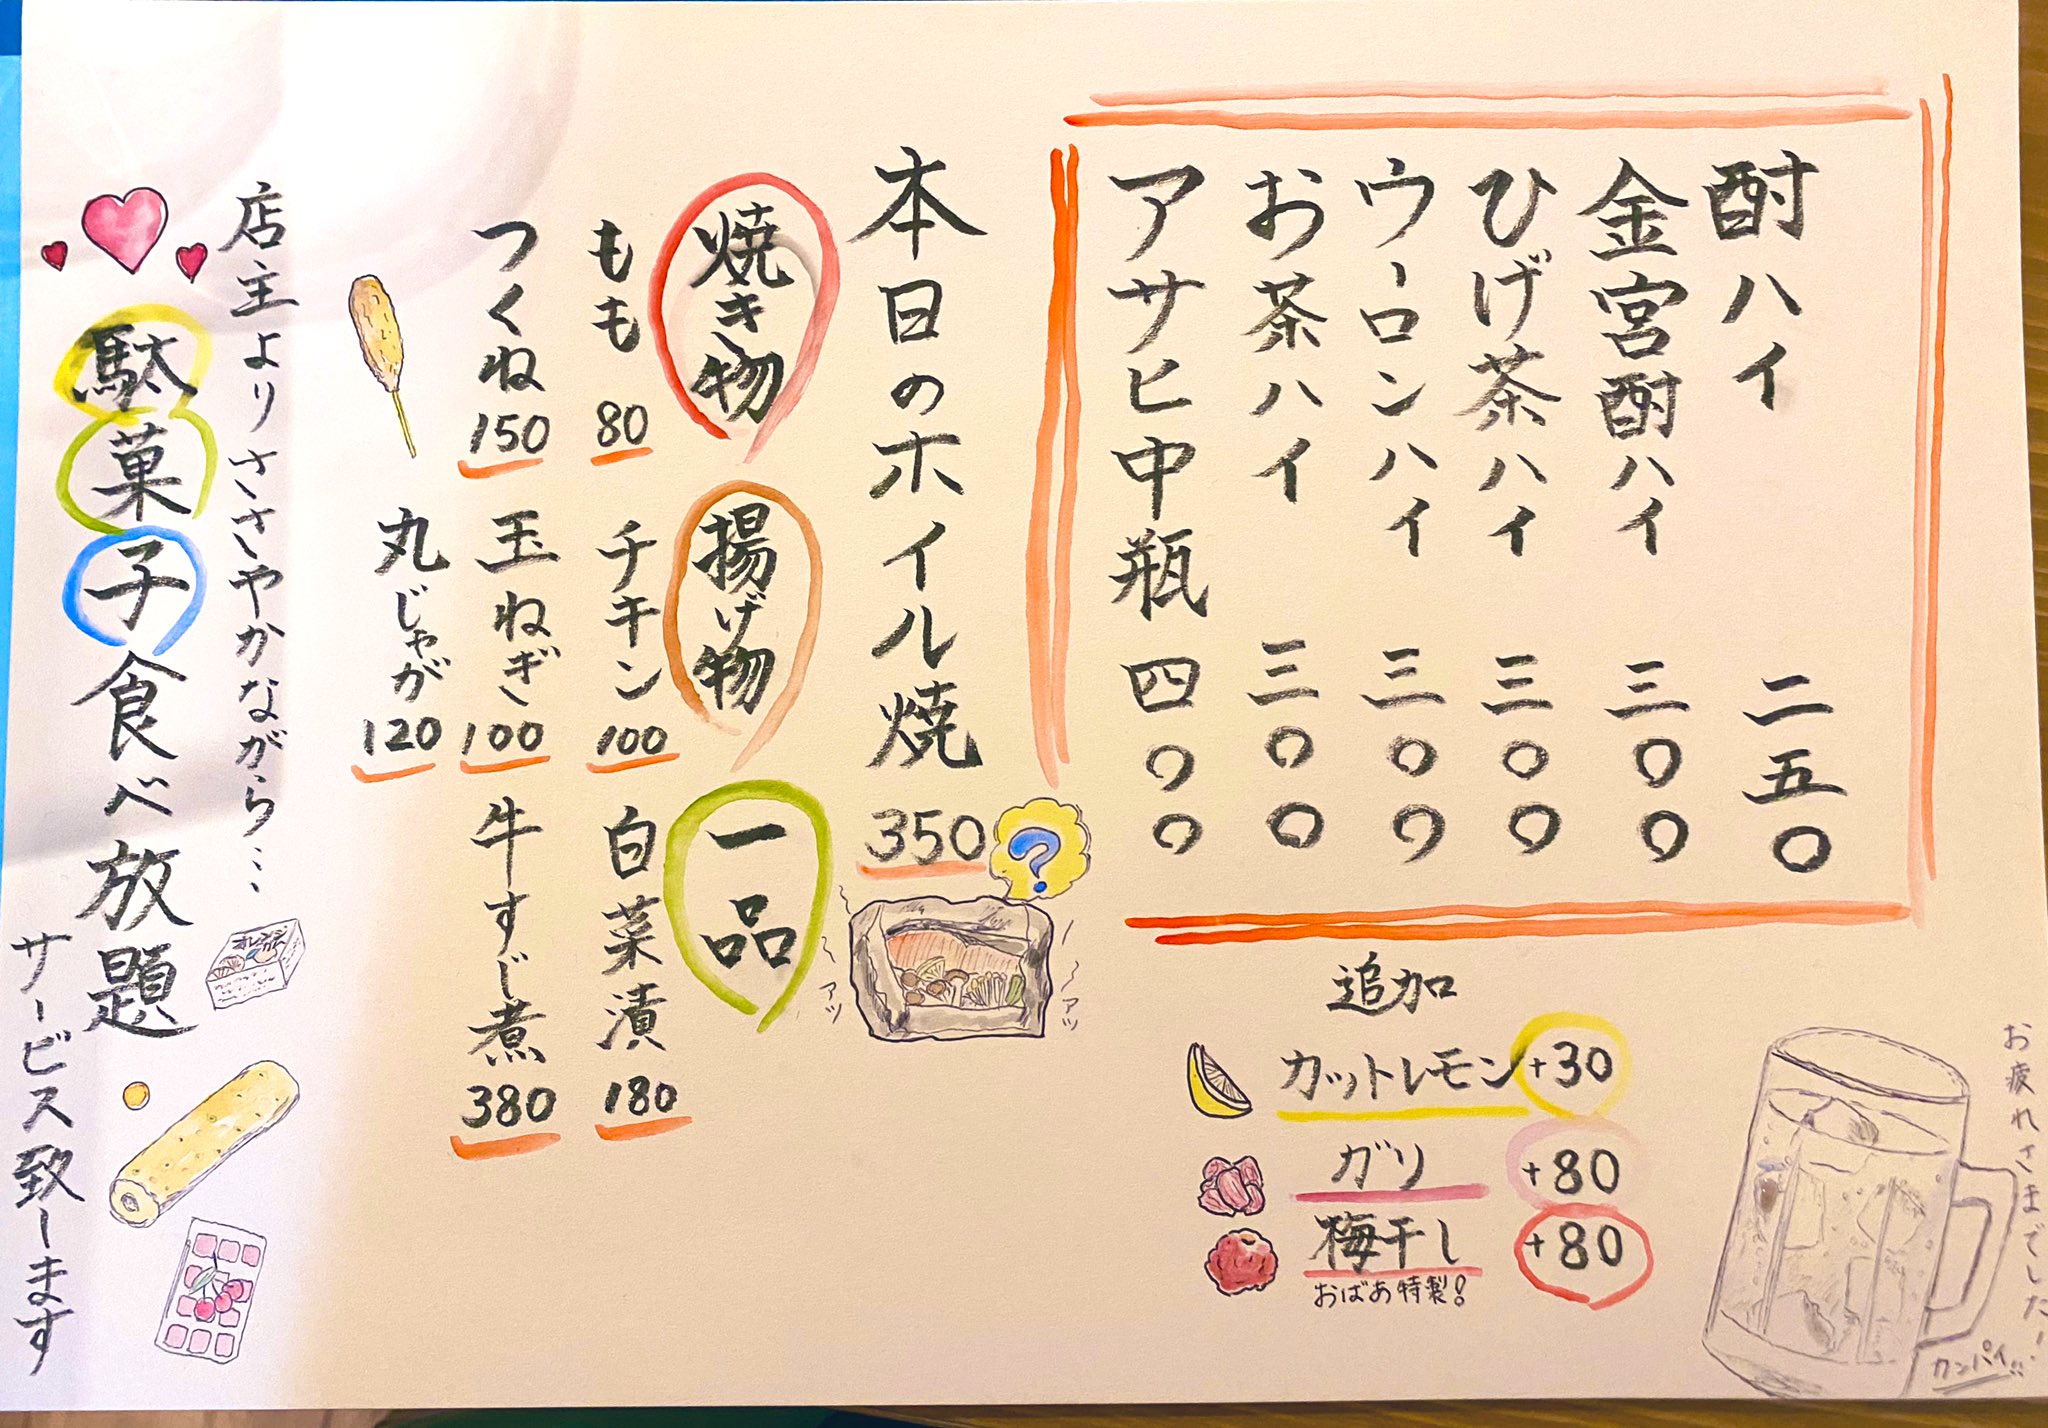 酎ハイ 二五〇
金宮酎ハイ 三〇〇
ひげ茶ハイ 三〇〇
ウーロンハイ 三〇〇
お茶ハイ 三〇〇
アサヒ中瓶 四〇〇
追加
カットレモン +30
ガリ +80
梅干し +80
おばあ特製!
お疲れさまでした!
カンパイ!!
本日のホイル焼 350
?
アツ
アツ
焼き物
もも 80
つくね 150
揚げ物
チキン 100
玉ねぎ 100
丸じゃが 120
一品
白菜漬 180
牛すじ煮 380
店主よりささやかながら…
駄菓子食べ放題
サービス致します